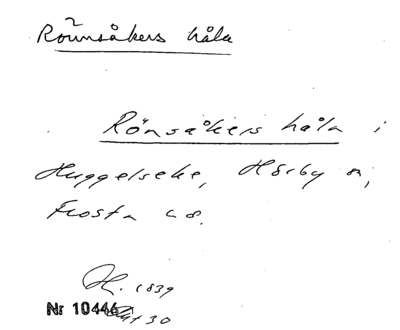 Rõunsåkers håla
Rönsåkers håla i
Huggelseke, Hörby sn,
Frosta hd.
H. 1839
Nr 10446 30